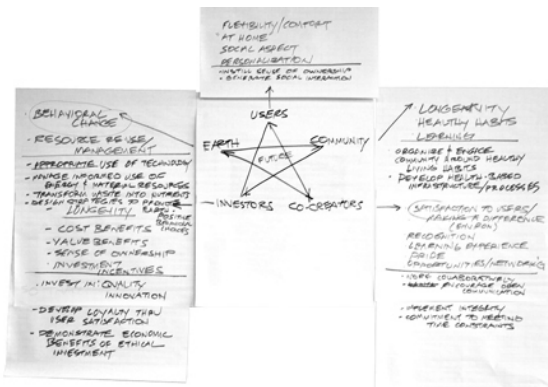 FLEXIBILITY/COMFORT
'AT HOME'
SOCIAL ASPECT
PERSONALIZATION
• INSTILL SENSE OF OWNERSHIP
• GENERATE SOCIAL INTERACTION
• BEHAVIORAL
CHANGE
• RESOURCE REUSE/
MANAGEMENT
• APPROPRIATE USE OF TECHNOLOGY
• MANAGE INFORMED USE OF
ENERGY & MATERIAL RESOURCES
• TRANSFORM WASTE INTO NUTRIENTS
• DESIGN STRATEGIES TO PROMOTE
- LONGEVITY
POSITIVE
BEHAVIORAL
CHOICES
- COST BENEFITS
- VALUE BENEFITS
- SENSE OF OWNERSHIP
- INVESTMENT
INCENTIVES
• INVEST IN: QUALITY
INNOVATION
- DEVELOP LOYALTY THRU
USER SATISFACTION
- DEMONSTRATE ECONOMIC
BENEFITS OF ETHICAL
INVESTMENT
USERS
EARTH
COMMUNITY
FUTURE
INVESTORS
CO-CREATORS
• LONGEVITY
HEALTHY HABITS
LEARNING
ORGANIZE & ENGAGE
COMMUNITY AROUND HEALTHY
LIVING HABITS
• DEVELOP HEALTH-BASED
INFRASTRUCTURE/PROCESSES
SATISFACTION TO USERS/
MAKING A DIFFERENCE
RECOGNITION
LEARNING EXPERIENCE
PRIDE
OPPORTUNITIES/NETWORKING
• WORK COLLABORATIVELY
ENCOURAGE OPEN
COMMUNICATION
• IMPLEMENT INTEGRITY
• COMMITMENT TO MEETING
TIME CONSTRAINTS